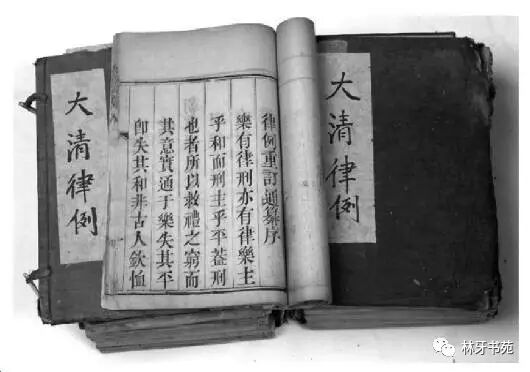 大清律例
律例重訂通纂序
樂有律刑亦有律樂主
乎和而刑主乎平葢刑
也者所以救禮之窮而
其意實通于樂失其平
卽失其和非古人欽恤
大清律例
林牙书苑